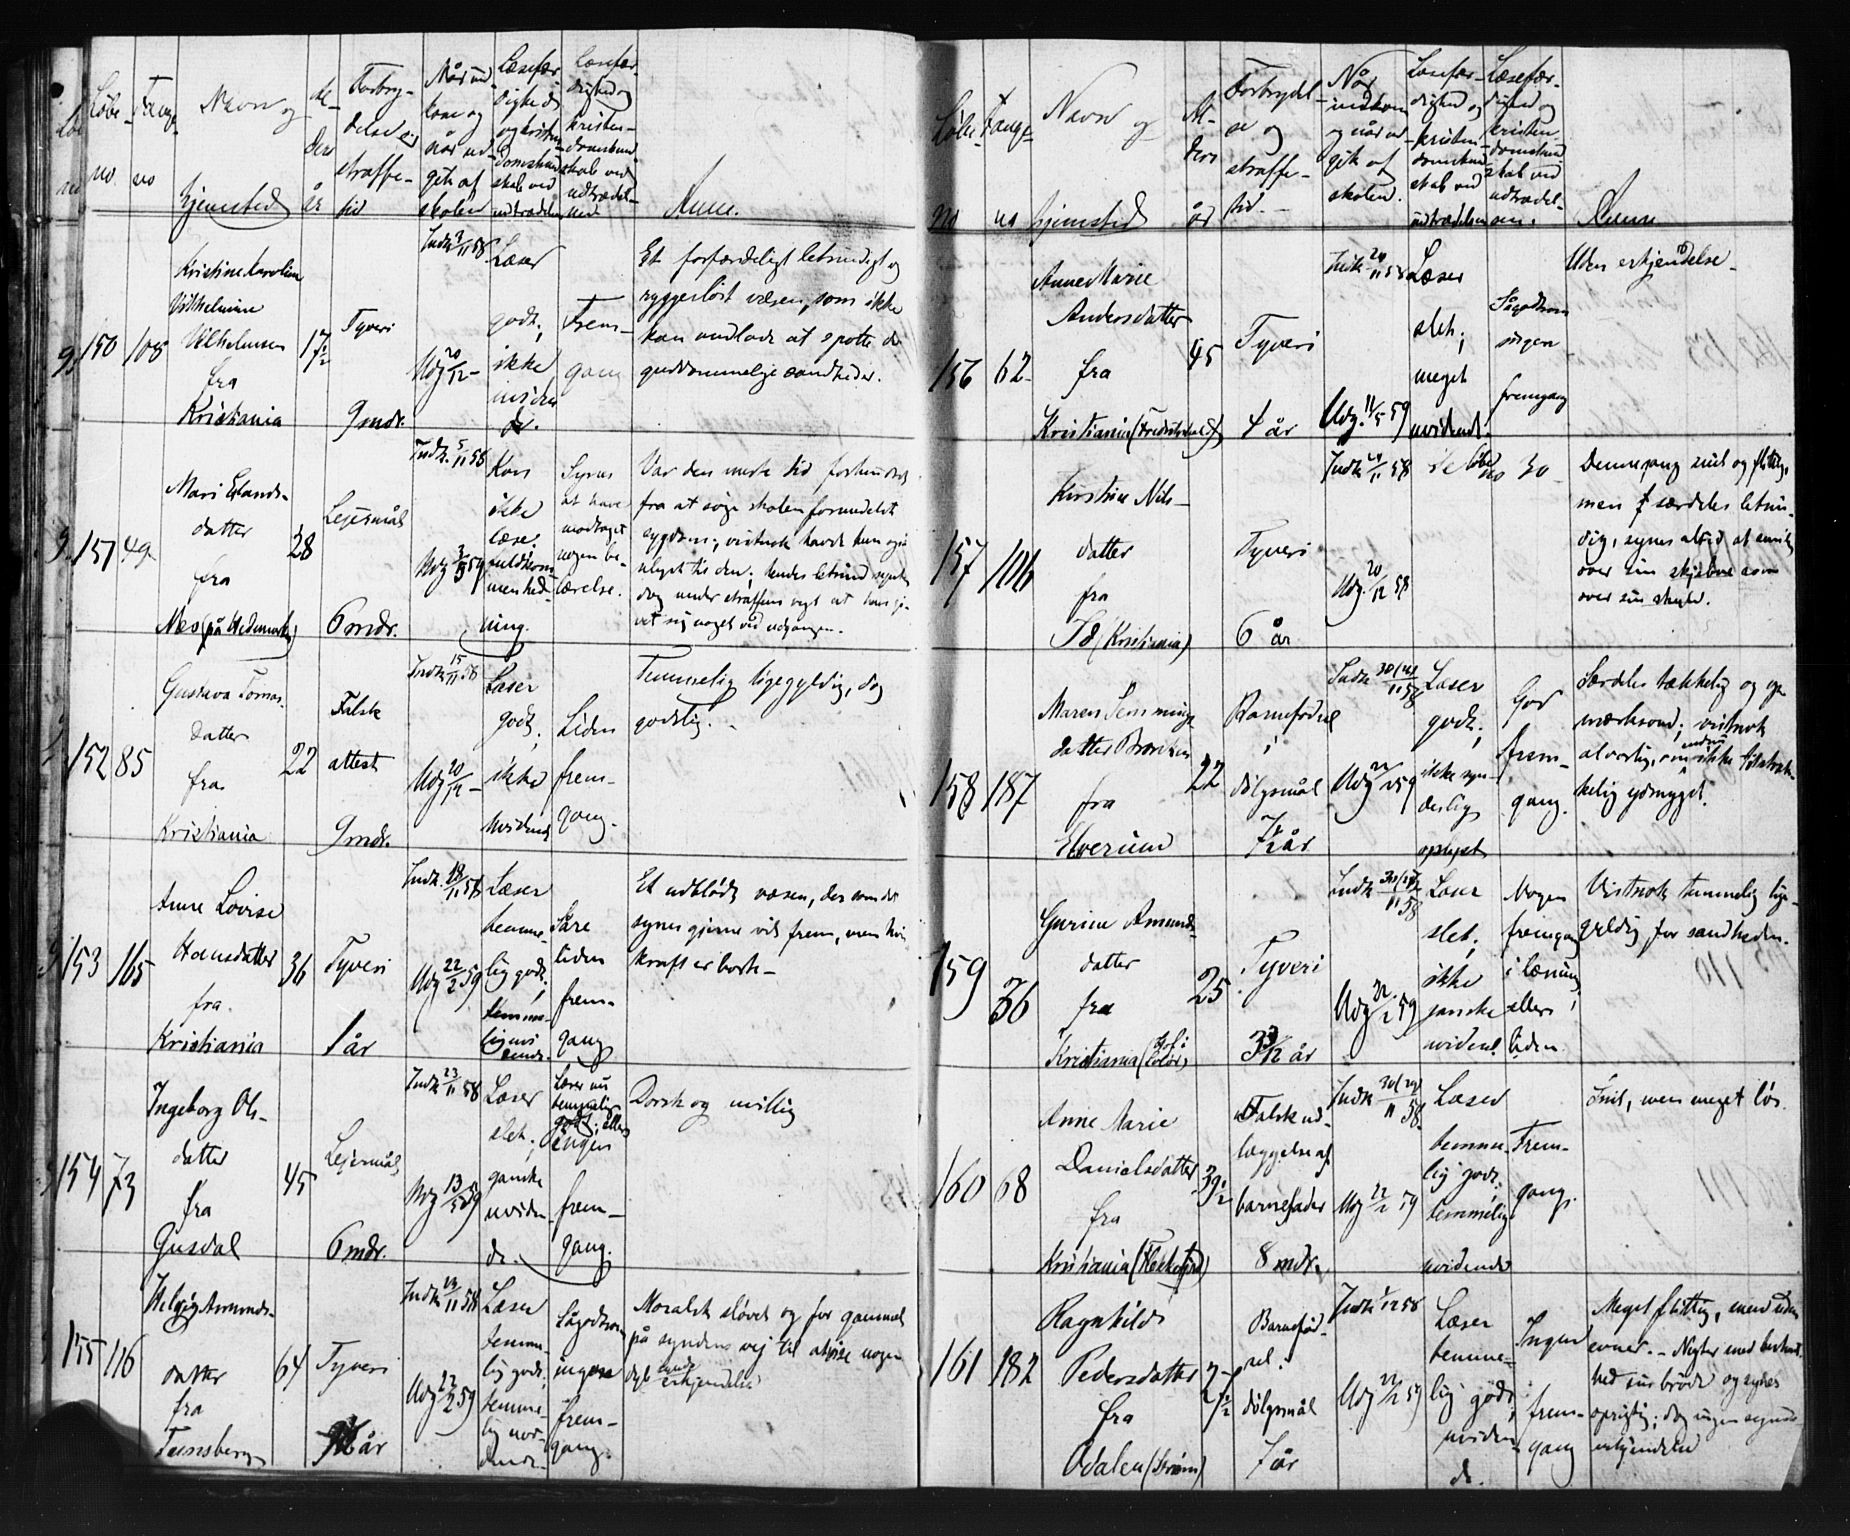 Løbe-
no.
Fange-
no
Navn
og
hjemsted
Al-
ders
år
Forbry-
delse og
straffe-
tid
Når ind-
kom og
når ud-
gik af
skolen
Læsefær-
dighed
og kristen-
domskund-
skab ved
indtrædelsen
Læsefær-
dighed og
kristen-
domskund-
skab ved
udtrædel-
sen
Anm.
150
108
Kristine Karoline
Vilhelmine
Vilhelmsen
fra
Kristiania
17½
Tyveri
9 mdr.
Indk. 3/11 58
Udg 20/12 -
Læser
godt;
ikke
uviden
de.
Frem-
gang
Et forfærdeligt letsindigt og
ryggesløst væsen, som ikke
kan undlade at spotte de
guddommelige sandheder.
151
49
Mari Erlands-
datter
fra
Nes (på Hedemarken)
28
Lejermål
6 mdr.
Indk. 5/11 58
Udg 3/3 59
Kan
ikke
læse;
fuldkom-
men hed-
ning.
Synes
at have
modtaget
nogen be-
lærelse.
Var den meste tid forhindret
fra at søge skolen formedelst
sygdom; vistnok havde hun også
ulyst til den; hendes letsind syntes
dog under straffens vægt at have gi-
vet sig noget ved udgangen.
152
85
Gustava Tomas-
datter
fra
Kristiania
22
Falsk
attest
9 mdr.
Indk 15/11 58
Udg 20/12 -
Læser
godt;
ikke
uvidende
Liden
frem-
gang.
Temmelig ligegyldig, dog
godslig. -
153
165
Anne Lovise
Hansdatter
fra
Kristiania
36
Tyveri
1 år
Indk. 18/11 58
Udg 22/2 59
Læser
temme-
lig godt;
temme-
lig uvi-
dende.
Såre
liden
frem-
gang
Et udblødt væsen, der som det
synes gjerne vil frem, men hvis
kraft er borte -
154
73
Ingeborg Ols-
datter
fra
Gusdal
45
Lejermål
6 mdr.
Indk 23/11 58
Udg 13/5 59
Læser
slet;
ganske
uviden-
de.
Læser nu
temmelig
godt; ellers
ingen
frem-
gang.
Dorsk og uvillig
155
116
Helvig Amunds-
datter
fra
Tunsberg
64
Tyveri
år
Indk 24/11 58
Udg 22/2 59
Læser
temme-
lig godt;
temme-
lig uvi-
dende.
Sågodtsom
ingen
frem-
gang.
Moralsk sløvet og for gammel
på syndens vej til at vise nogen
dyb synds
erkjendelse
Løbe-
no
Fange-
no
Navn
og
hjemsted
Al-
ders
år
Forbrydel-
se og
straffe-
tid.-
Når
indkom
og når ud
gik af
skolen.
Læsefær-
dighed og
kristen-
domskund-
skab ved
indtrædelsen
Læsefær-
dighed og
kristen-
domskund-
skab ved
udtrædel-
sen.
Anm
156
62
Anne Marie
Andersdatter
fra
Kristiania (Fredrikshald)
45
Tyveri
4 år
Indk 24/11 58
Udg. 11/5 59
Læser
slet;
meget
uvidende.
Sågodtsom
ingen
fremgang
Uden erkjendelse
157
106
Kirstine Nils-
datter
fra
Id (Kristiania)
Tyveri
6 år
Indk 24/11 58
Udg. 20/12 58
se løbe
no 30
Denne gang snil og flittig,
men særdeles letsin-
dig, synes altid at smile
over sin skjebne som
over sin skyld.
158
187
Maren Semmings
datter Bronken
fra
Elverum
22
Barnefødsel
i
dølgsmål
år
Indk 30/11 58
Udg 22/2 59
Læser
godt;
ikke syn-
derlig
oplyst
God
frem-
gang.
Særdeles tækkelig og op-
mærksom; vistnok
alvorlig, om endnu ikke tilstræk-
kelig ydmyget.
159
36
Gurine Amunds-
datter
fra
Kristiania (Hof i
Solør)
25
Tyveri
år
Indk 30/11 58
Udg 22/2 59
Læser
slet;
ikke
ganske
uvidende
Nogen
fremgang
i læsning;
ellers
liden
Vistnok temmelig lige-
gyldig for sandheden.
160
68
Anne Marie
Danielsdatter
fra
Kristiania (Flekkefjord)
39½
Falsk ud-
læggelse af
barnefader
8 mdr.
Indk 30/11 58
Udg 22/2 59
Læser
temme-
lig godt;
temmelig
uvidende
Frem-
gang.
Snil, men meget løs.
161
182
Ragnhild
Pedersdatter
fra
Odalen (Strøm)
Barnefød-
sel i
dølgsmål
7 år
Indk 1/12 58
Udg 22/2 59
Læser
temme-
lig godt;
uviden-
de.
Ingen
frem-
gang
Meget flittig, men uden
evner. - Negter med bestemt-
hed sin brøde og synes
oprigtig; dog ingen synds-
erkjendelse